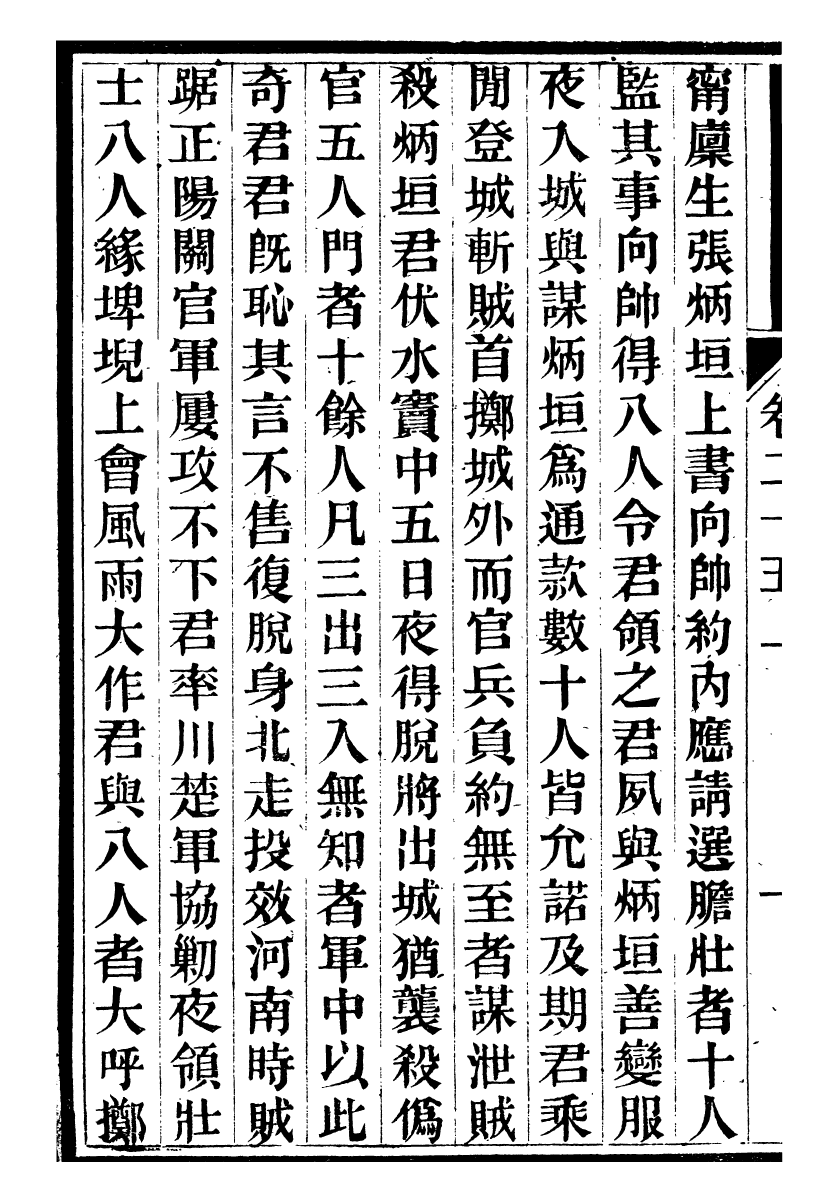 甯廩生張炳垣上書向帥約內應請選膽壯者十人
監其事向帥得八人令君領之君夙與炳垣善變服
夜入城與謀炳垣爲通款數十人皆允諾及期君乘
閒登城斬賊首擲城外而官兵負約無至者謀泄賊
殺炳垣君伏水竇中五日夜得脫將出城猶襲殺僞
官五人門者十餘人凡三出三入無知者軍中以此
奇君君旣恥其言不售復脫身北走投效河南時賊
踞正陽關官軍屢攻不下君率川楚軍協勦夜領壯
士八人緣埤堄上會風雨大作君與八人者大呼擲